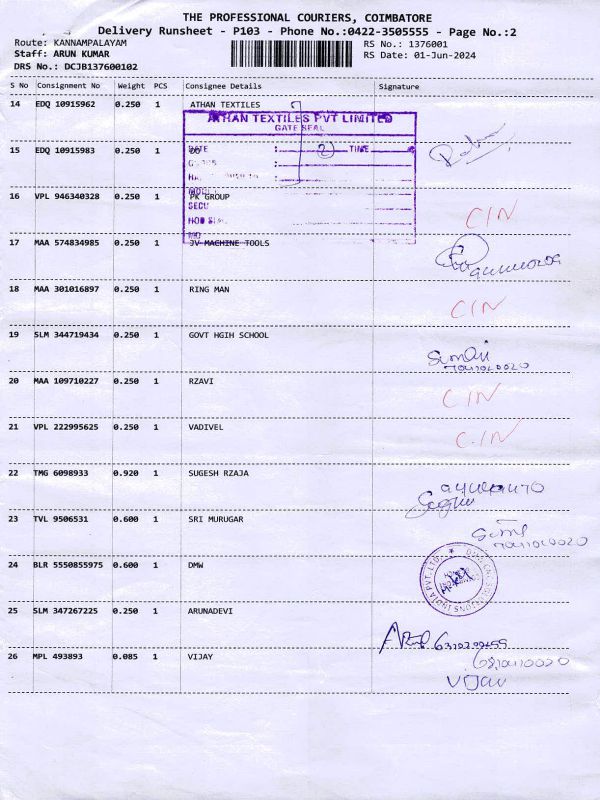 THE PROFESSIONAL COURIERS, COIMBATORE
Delivery Runsheet - P103 - Phone No.:0422-3505555 - Page No.:2
Route: KANNAMPALAYAM RS No.: 1376001
Staff: ARUN KUMAR RS Date: 01-Jun-2024
DRS No.: DCJB137600102
S No Consignment No Weight PCS Consignee Details Signature
14 EDQ 10915962 0.250 1 ATHAN TEXTILES
ATHAN TEXTILES PVT LIMITED
GATE SEAL
15 EDQ 10915983 0.250 1 DO
DATE : 2 TIME
16 VPL 946340328 0.250 1 PK GROUP CIN
SECU
17 MAA 574834985 0.250 1 JV MACHINE TOOLS
18 MAA 301016897 0.250 1 RING MAN CIN
19 SLM 344719434 0.250 1 GOVT HGIH SCHOOL
20 MAA 109710227 0.250 1 RZAVI CIN
21 VPL 222995625 0.250 1 VADIVEL C.IN
22 TMG 6098933 0.920 1 SUGESH RZAJA
23 TVL 9506531 0.600 1 SRI MURUGAR
24 BLR 5550855975 0.600 1 DMW
25 SLM 347267225 0.250 1 ARUNADEVI
26 MPL 493893 0.085 1 VIJAY